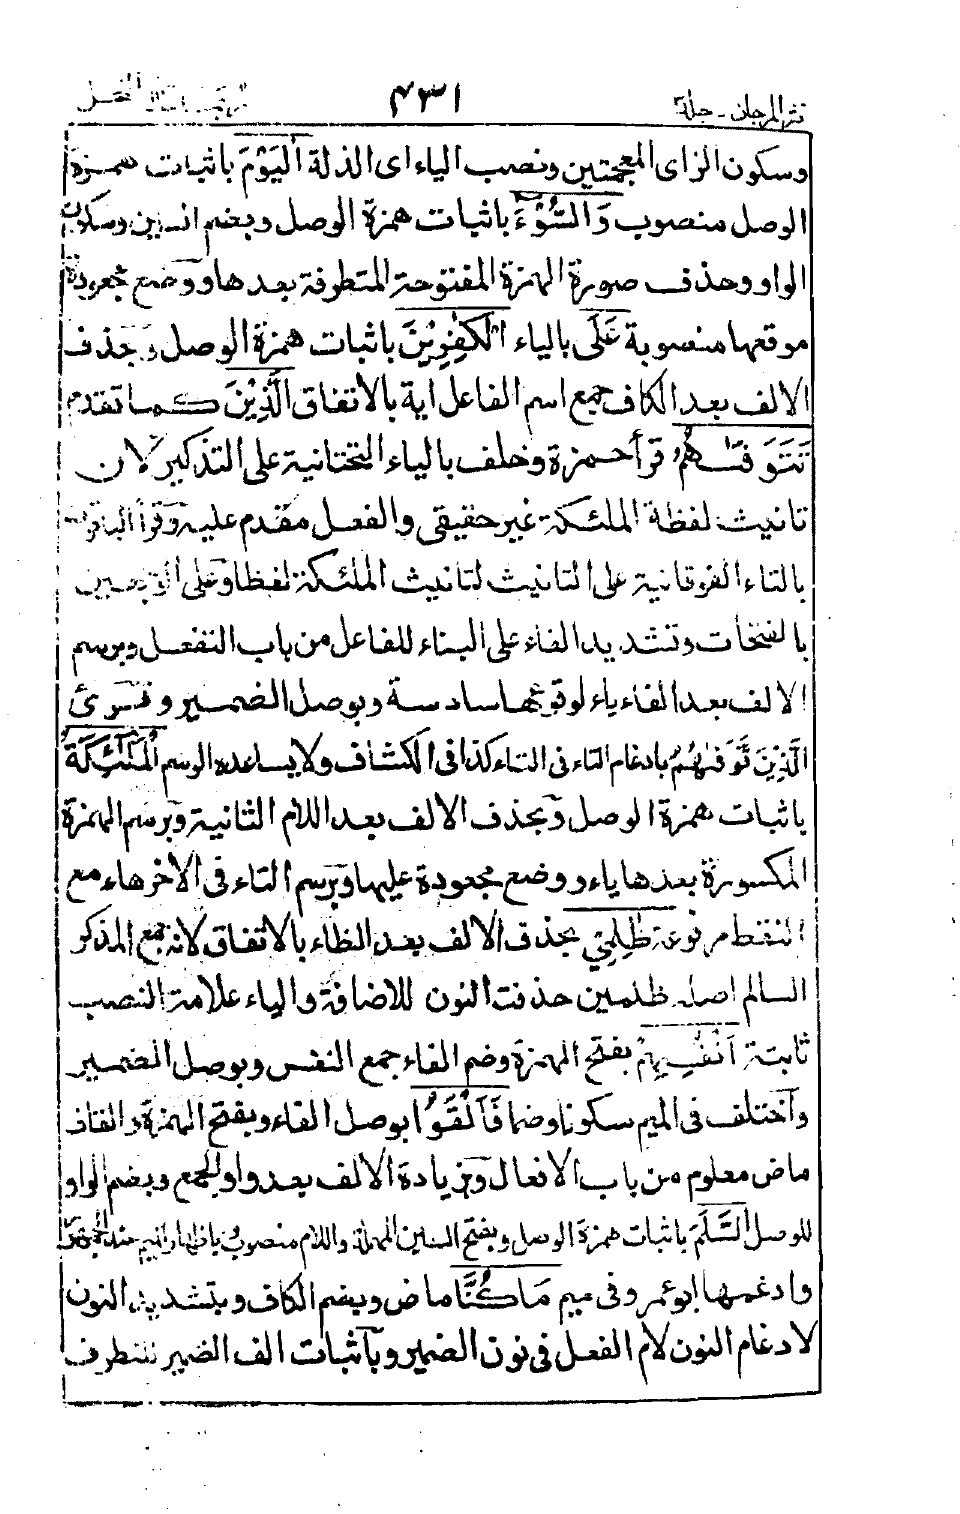 نثر المرجان - جلد ٣
٤٣١
النحل
وسكون الزاى المعجمتين ونصب الياء اى الذلة اَلْيَوْمَ باثبات همزة
الوصل منصوب وَالسُّوْءَ باثبات همزة الوصل وبضم السين وسكون
الواو وحذف صورة الهمزة المفتوحة المتطرفة بعدها ووضع مجعودة
موقعها منصوبة عَلَى بالياء الْكٰفِرِيْنَ باثبات همزة الوصل وبحذف
الالف بعد الكاف جمع اسم الفاعل اية بالاتفاق الَّذِيْنَ كما تقدم
تَتَوَفّٰىهُمُ قرأ حمزة وخلف بالياء التحتانية على التذكير لان
تانيث لفظة الملئكة غير حقيقى والفعل مقدم عليه وقرأ الباقون
بالتاء الفوقانية على التانيث لتانيث الملئكة لفظا وعلى الوجهين
بالفتحات وتشديد الفاء على البناء للفاعل من باب التفعل وبرسم
الالف بعد الفاء ياء لوقوعها سادسة وبوصل الضمير وقرئ
الَّذِيْنَ تَّوَفّٰىهُمُ بادغام التاء فى التاء كذا فى الكشاف ولا يساعده الرسم الْمَلٰٓئِكَةُ
باثبات همزة الوصل وبحذف الالف بعد اللام الثانية وبرسم الهمزة
المكسورة بعدها ياء ووضع مجعودة عليها وبرسم التاء فى الاخرهاء مع
النقط مرفوعة ظَالِمِيْ بحذف الالف بعد الظاء بالاتفاق لانه جمع المذكر
السالم اصله ظلمين حذفت النون للاضافة والياء علامة النصب
ثابتة اَنْفُسِهِمْ بفتح الهمزة وضم الفاء جمع النفس وبوصل الضمير
واختلف فى الميم سكونا وضما فَاَلْقَوُا بوصل الفاء وبفتح الهمزة والقاف
ماض معلوم من باب الافعال وبزيادة الالف بعد واو الجمع وبضم الواو
للوصل السَّلَمَ باثبات همزة الوصل وبفتح السين المهملة واللام منصوب باظهار الميم عند الجمهور
وادغمها ابو عمرو فى ميم مَا كُنَّا ماض وبضم الكاف وبتشديد النون
لادغام النون لام الفعل فى نون الضمير وباثبات الف الضمير للتطرف